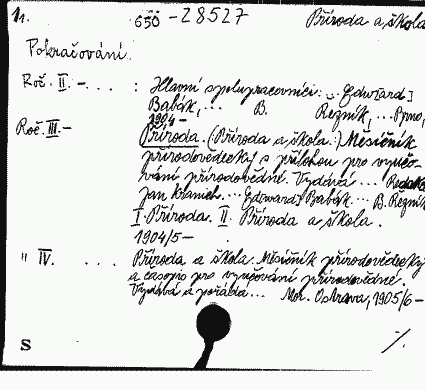 1. 650 -28527 Příroda a škola
Pokračování.
Roč. II. - . . . : Hlavní spolupracovníci: ... Edw[ard]
Babák, ... B. Řezník, ... Brno,
1904-
Roč. III. - Příroda. (Příroda a škola.) Měsíčník
přírodovědecký s přílohou pro vyučo-
vání přírodovědné. Vydává ... Redakt
Jan Kranich. ... Edward Babák ... B. Řezník
I. Příroda. II. Příroda a škola.
1904/5-
" IV. . . . . Příroda a škola. Měsíčník přírodovědecký
a časopis pro vyučování přírodovědné.
Vydává a pořádá ... Mor. Ostrava, 1905/6-
S ./.